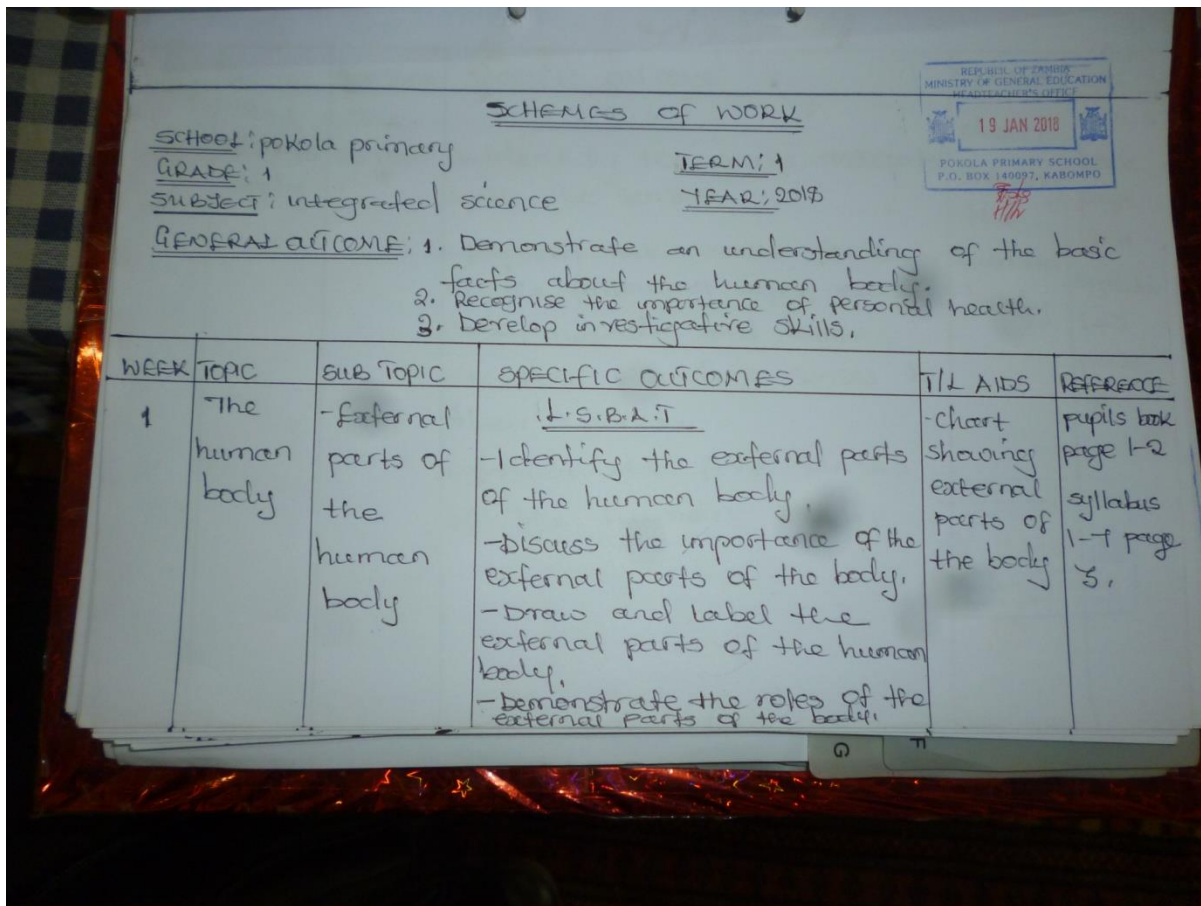 REPUBLIC OF ZAMBIA
MINISTRY OF GENERAL EDUCATION
HEADTEACHER'S OFFICE
19 JAN 2018
POKOLA PRIMARY SCHOOL
P.O. BOX 140097, KABOMPO
SCHEMES OF WORK
SCHOOL: pokola primary
GRADE: 1
TERM: 1
SUBJECT: integrated science
YEAR: 2018
GENERAL OUTCOME: 1. Demonstrate an understanding of the basic
facts about the human body.
2. Recognise the importance of personal health.
3. Develop investigative skills.
WEEK TOPIC SUB TOPIC SPECIFIC OUTCOMES T/L AIDS REFERENCE
1
The
human
body
-External
parts of
the
human
body
L.S.B.A.T
-Identify the external parts
of the human body.
-Discuss the importance of the
external parts of the body.
-Draw and label the
external parts of the human
body.
-Demonstrate the roles of the
external parts of the body.
-Chart
showing
external
parts of
the body
pupils book
page 1-2
syllabus
1-7 page
3.
G
F